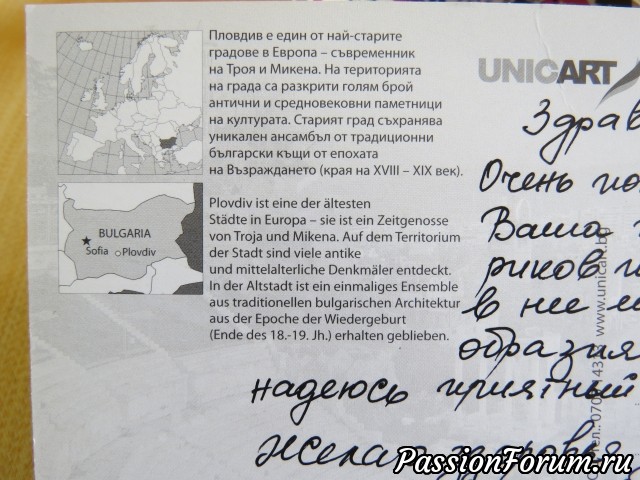 Пловдив е един от най-старите
градове в Европа – съвременник
на Троя и Микена. На територията
на града са разкрити голям брой
антични и средновековни паметници
на културата. Старият град съхранява
уникален ансамбъл от традиционни
български къщи от епохата
на Възраждането (края на XVIII – XIX век).
BULGARIA
Sofia Plovdiv
Plovdiv ist eine der ältesten
Städte in Europa – sie ist ein Zeitgenosse
von Troja und Mikena. Auf dem Territorium
der Stadt sind viele antike
und mittelalterliche Denkmäler entdeckt.
In der Altstadt ist ein einmaliges Ensemble
aus traditionellen bulgarischen Architektur
aus der Epoche der Wiedergeburt
(Ende des 18.-19. Jh.) erhalten geblieben.
UNICART
Здрав
Очень по
Ваша
риков
в ней
образия
надеюсь приятный
Желаю здоровья
www.unicart.bg
PassionForum.ru